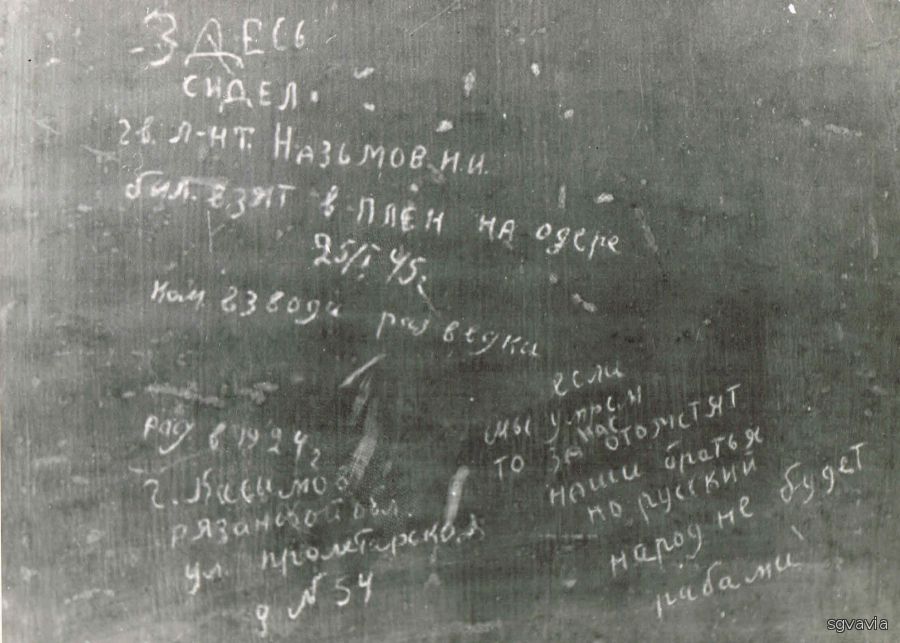 ЗДЕСЬ
СИДЕЛ.
гв. Л-НТ. НАЗЬМОВ Н.И.
был. взят в ПЛЕН НА одере
25/I 45г
ком. взвода разведки
в 1924г
г. Касимов
рязанской обл.
ул. пролетарская
д № 54
если
мы умрем
нас
то за отомстят
наши братья
но русский
народ не будет
рабами
sgvavia